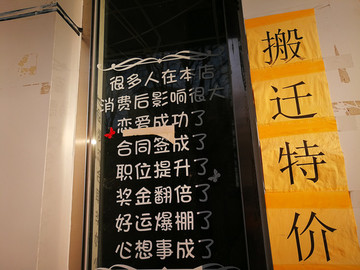 很多人在本店
消费后影响很大
恋爱成功了
合同签成了
职位提升了
奖金翻倍了
好运爆棚了
心想事成了
搬迁特价